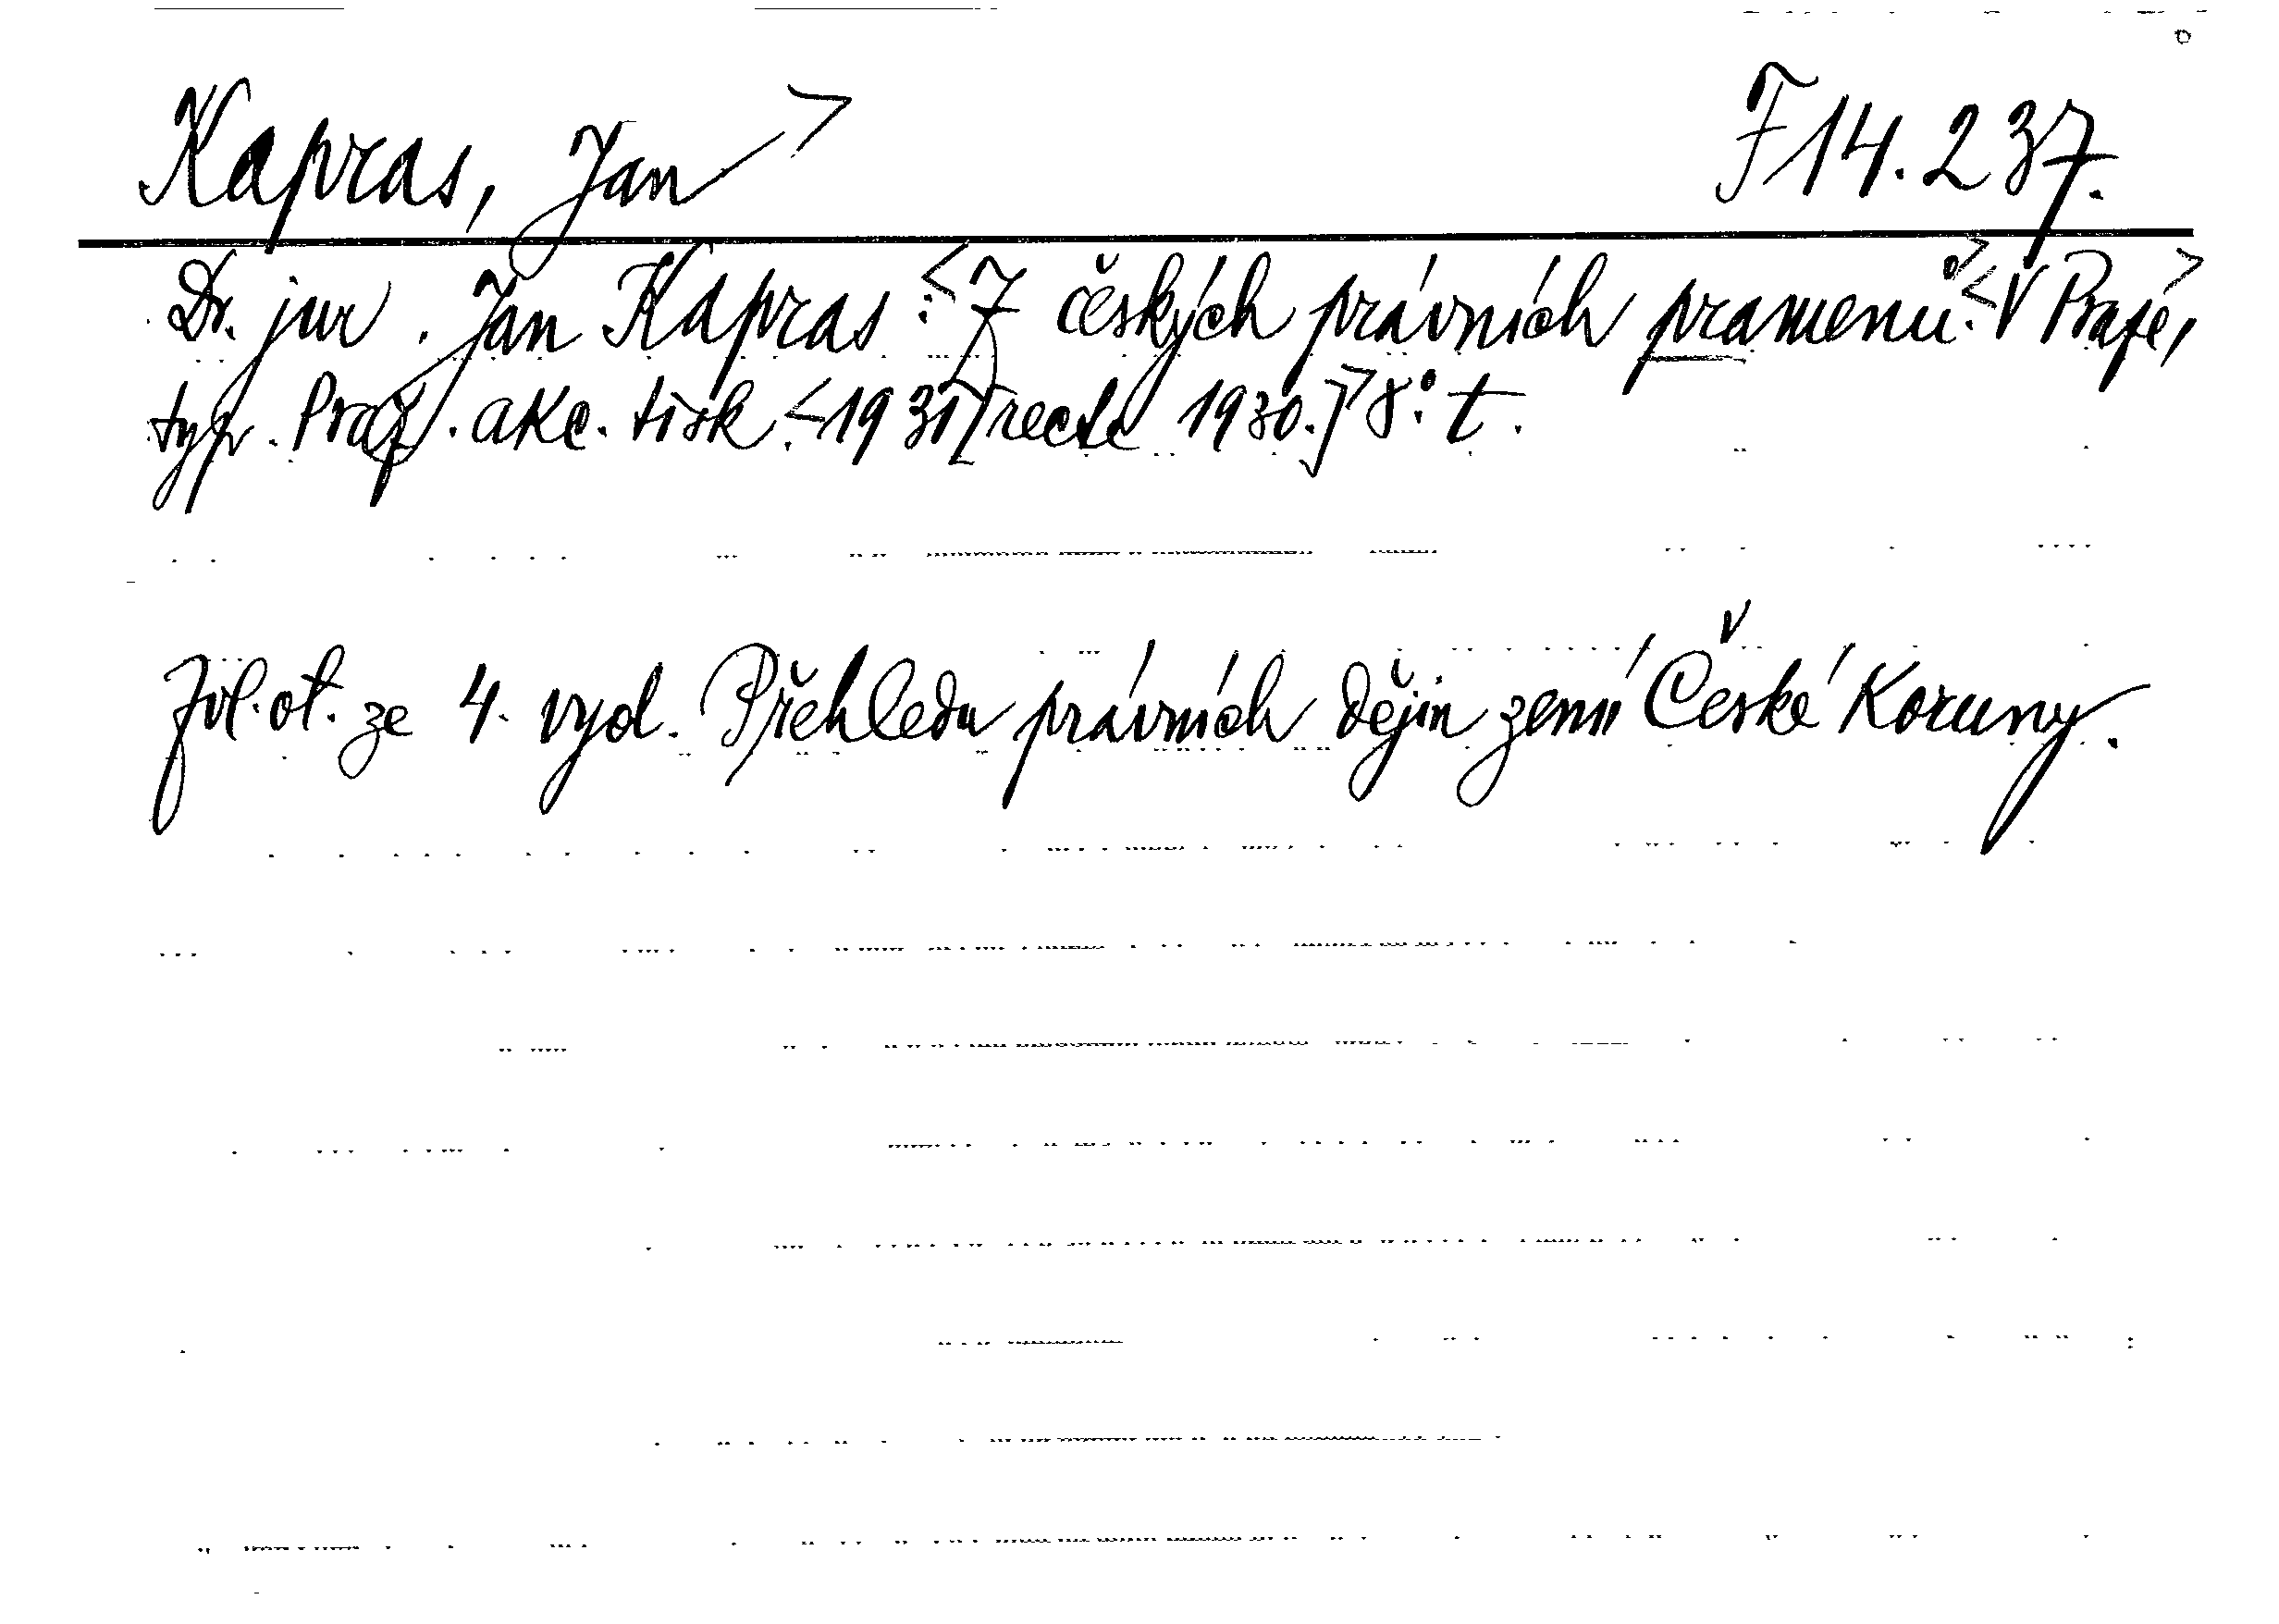 Kapras, Jan> F 14.237.
Dr. jur. Jan Kapras:<Z českých právních pramenů.><V Praze,>
typ. Praž. akc. tisk.<1931[recte 1930.]>8°. t.
Zvl. ot. ze 4. vyd. Přehledu právních dějin zemí České Koruny.